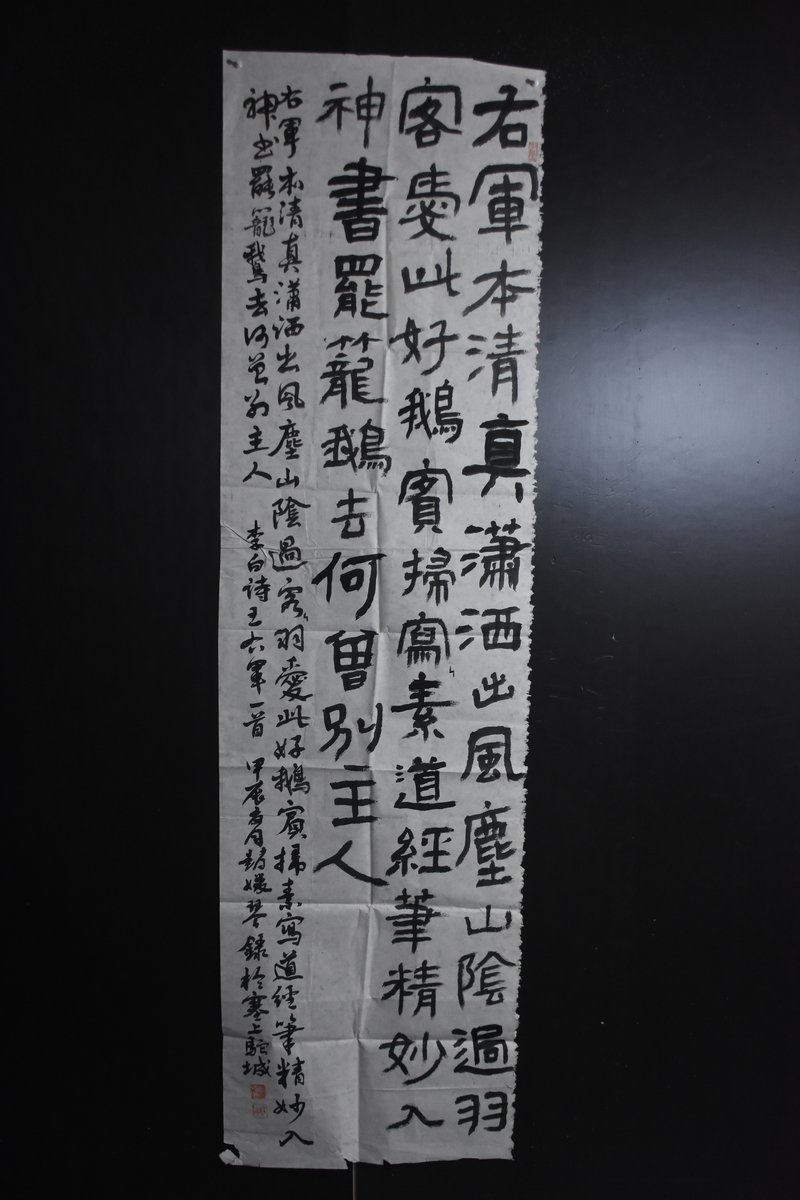 右軍本清真瀟洒出風塵山陰過羽
客愛此好鵝賓掃寫素道經筆精妙入
神書罷籠鵝去何曾別主人
右軍本清真瀟洒出風塵山陰過客羽愛此好鵝賓掃素寫道經筆精妙入
神书罷籠鵝去何曾別主人 李白诗王右軍一首 甲辰月琴錄於塞上駝城